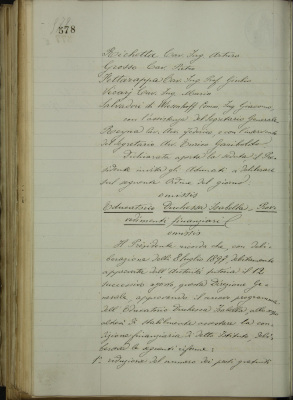 578
Richetta Cav. Ing. Arturo
Grosso Cav. Pietro
Pellarappa Cav. Ing. Prof. Giulio
Vicarj Cav. Ing. Mario
Salvadori di Wiesenhoff Conte Ing. Giacomo,
con l'assistenza del Segretario Generale
Rosyna Cav. Avv. e con l'intervento
del Segretario Avv. Garibaldo
Dichiarata aperta la seduta il Pre-
sidente invita gli Adunati a deliberare
sul seguente Ordine del giorno
omissis
Educatorio Duchessa Isabella. Prov-
vedimenti finanziari
omissis
Il Presidente ricorda che, con deli-
berazione delli 8 luglio 1898, debitamente
approvata dall'Autorità tutoria il 12
successivo agosto, questa Direzione Ge-
nerale, approvando il nuovo programma
dell'Educatorio Duchessa Isabella, allo
di stabilmente assodare la con-
dizione finanziaria di detto Istituto deli-
berava le seguenti riforme:
1° riduzione del numero dei posti gratuiti